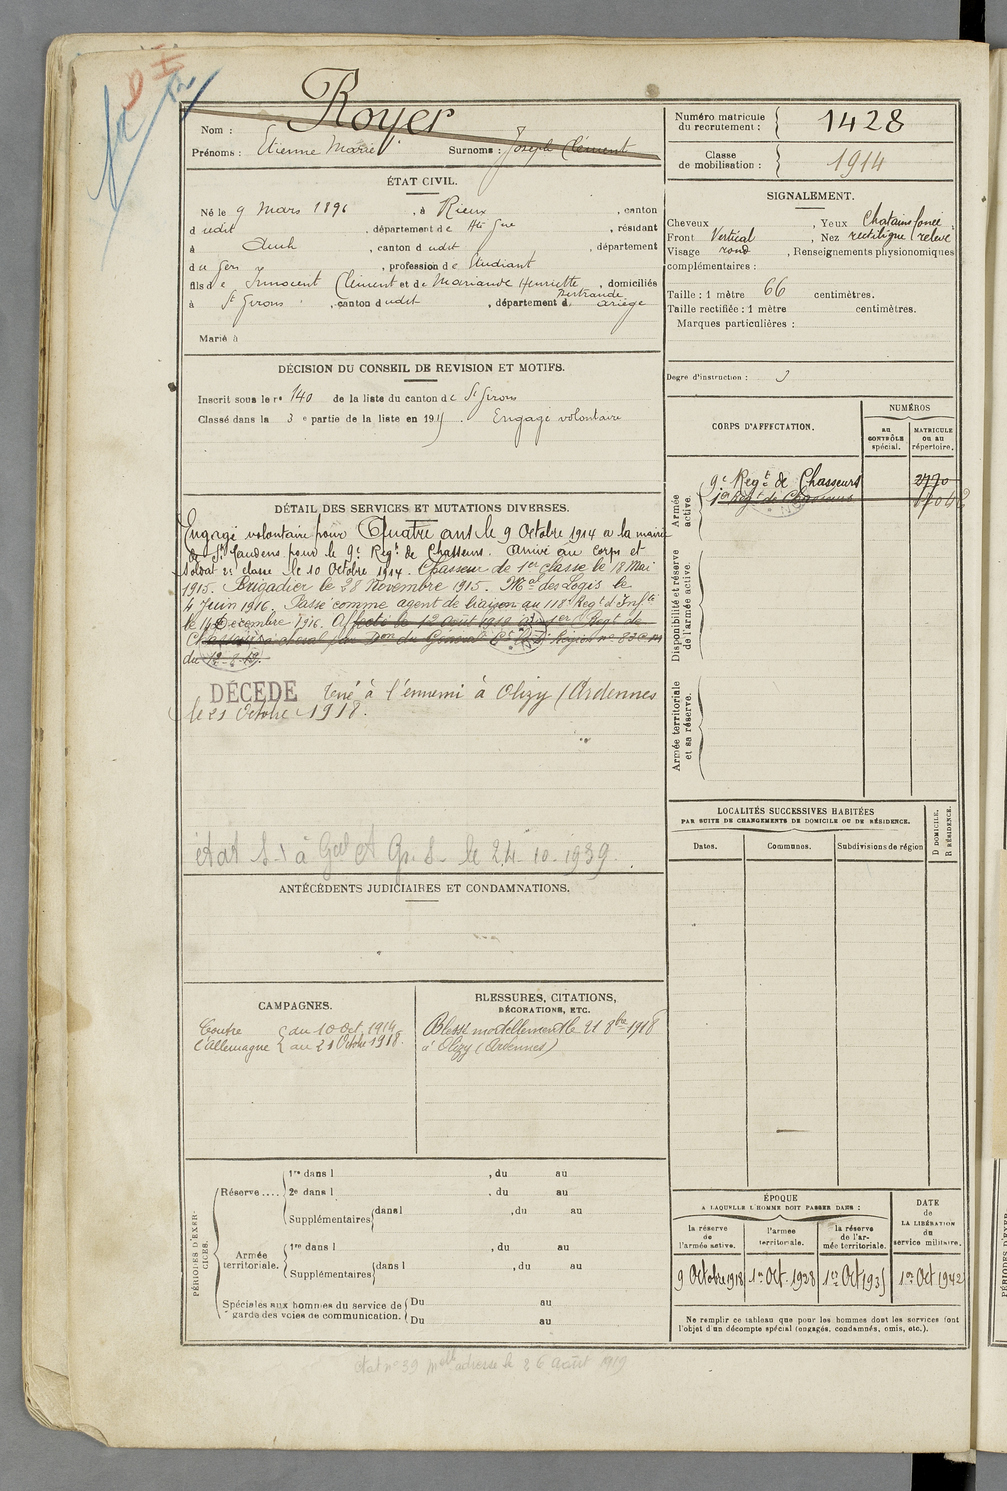 Royer
Nom :
Prénoms : Etienne Marie Surnoms : Joseph Clément
Numéro matricule
du recrutement : 1428
Classe
de mobilisation : 1914
ÉTAT CIVIL.
Né le 9 Mars 1896, à Rieux, canton
dudit, département de Hte Gne, résidant
à Auch, canton dudit, département
du Gers, profession d'Etudiant
fils de Innocent Clément et de Mariande Henriette Bertrande, domiciliés
à St Girons, canton dudit, département d Ariège
Marié à
SIGNALEMENT.
Cheveux , Yeux Chatains foncé,
Front Vertical, Nez rectiligne (relevé
Visage rond, Renseignements physionomiques
complémentaires :
Taille : 1 mètre 66 centimètres.
Taille rectifiée : 1 mètre centimètres.
Marques particulières :
Degré d'instruction : 3
DÉCISION DU CONSEIL DE REVISION ET MOTIFS.
Inscrit sous le no 140 de la liste du canton de St Girons
Classé dans la 3e partie de la liste en 1915. Engagé volontaire
CORPS D'AFFECTATION.
NUMÉROS
AU CONTRÔLE spécial.
MATRICULE OU AU répertoire.
Armée active.
9e Regt de Chasseurs 2770
1er Regt de Chasseurs
Disponibilité et réserve de l'armée active.
Armée territoriale et sa réserve.
DÉTAIL DES SERVICES ET MUTATIONS DIVERSES.
Engagé volontaire pour Quatre ans le 9 Octobre 1914 à la mairie
de St Gaudens pour le 9e Regt de Chasseurs. Arrivé au corps et
soldat 2e classe le 10 Octobre 1914. Chasseur de 1ere classe le 18 Mai
1915. Brigadier le 28 Novembre 1915. Mal des Logis le
4 Juin 1916. Passé comme agent de liaison au 118e Regt d'Infie
le 14 Décembre 1916. Affecté le 12 Août 1919 au 1er Regt de
Chasseurs à cheval par Don du Général
du 12-8-19.
DÉCÉDÉ Tué à l'ennemi à Olizy (Ardennes
le 21 Octobre 1918.
le 24-10-1939.
LOCALITÉS SUCCESSIVES HABITÉES
PAR SUITE DE CHANGEMENTS DE DOMICILE OU DE RÉSIDENCE.
Dates.
Communes.
Subdivisions de région
D DOMICILE.
R RÉSIDENCE.
ANTÉCÉDENTS JUDICIAIRES ET CONDAMNATIONS.
CAMPAGNES.
Contre l'Allemagne { du 10 Oct. 1914
au 21 Octobre 1918.
BLESSURES, CITATIONS,
DÉCORATIONS, ETC.
Blessé mortellement le 21 8bre 1918
à Olizy (Ardennes)
PÉRIODES D'EXERCICES.
Réserve.... 1re dans l , du au
2e dans l , du au
Supplémentaires dans l , du au
Armée territoriale. 1re dans l , du au
Supplémentaires dans l , du au
Spéciales aux hommes du service de garde des voies de communication. Du au
Du au
ÉPOQUE
A LAQUELLE L'HOMME DOIT PASSER DANS :
la réserve de l'armée active.
l'armée territoriale.
la réserve de l'armée territoriale.
DATE de LA LIBÉRATION du service militaire.
9 Octobre 1918 1er Oct. 1928 1er Oct 1935 1er Oct 1942
Ne remplir ce tableau que pour les hommes dont les services font
l'objet d'un décompte spécial (engagés, condamnés, omis, etc.).
état no 39 adressé le 26 Août 1919